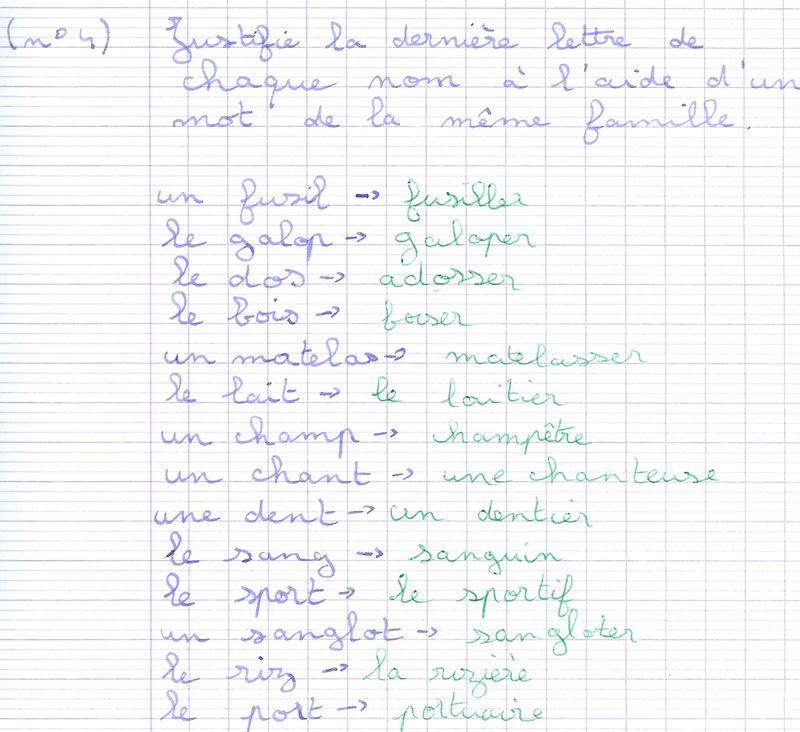 (n° 4) Justifie la dernière lettre de
chaque nom à l'aide d'un
mot de la même famille.
un fusil → fusiller
le galop → galoper
le dos → adosser
le bois → boiser
un matelas → matelasser
le lait → le laitier
un champ → champêtre
un chant → une chanteuse
une dent → un dentier
le sang → sanguin
le sport → le sportif
un sanglot → sangloter
le riz → la rizière
le port → portuaire